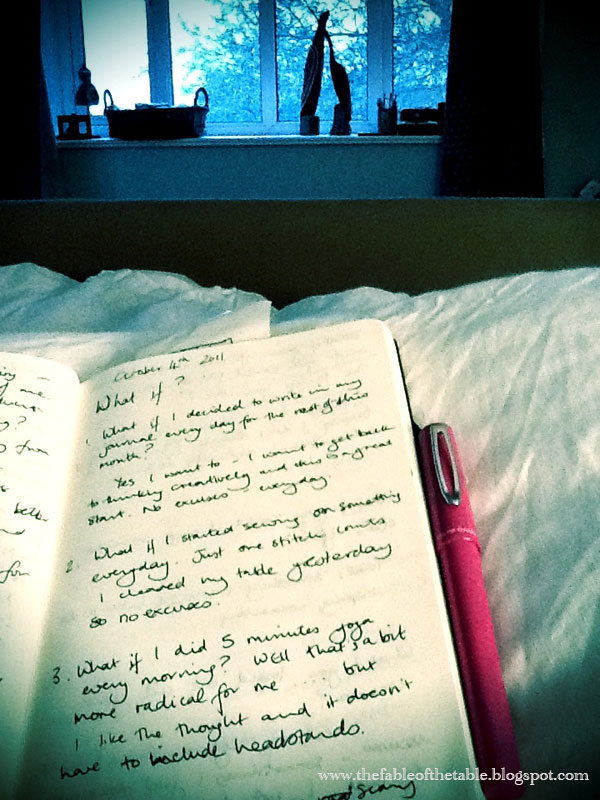 me
October 4th 2011
What if?
1. What if I decided to write in my
journal every day for the rest of this
month?
Yes I want to – I want to get back
to thinking creatively and this is a great
start. No excuses – everyday.
2. What if I started sewing on something
everyday. Just one stitch counts
I cleared my table yesterday
so no excuses.
3. What if I did 5 minutes yoga
every morning? Well that's a bit
more radical for me ... but
I like the thought and it doesn't
have to include headstands.
scary
better
www.thefableofthetable.blogspot.com